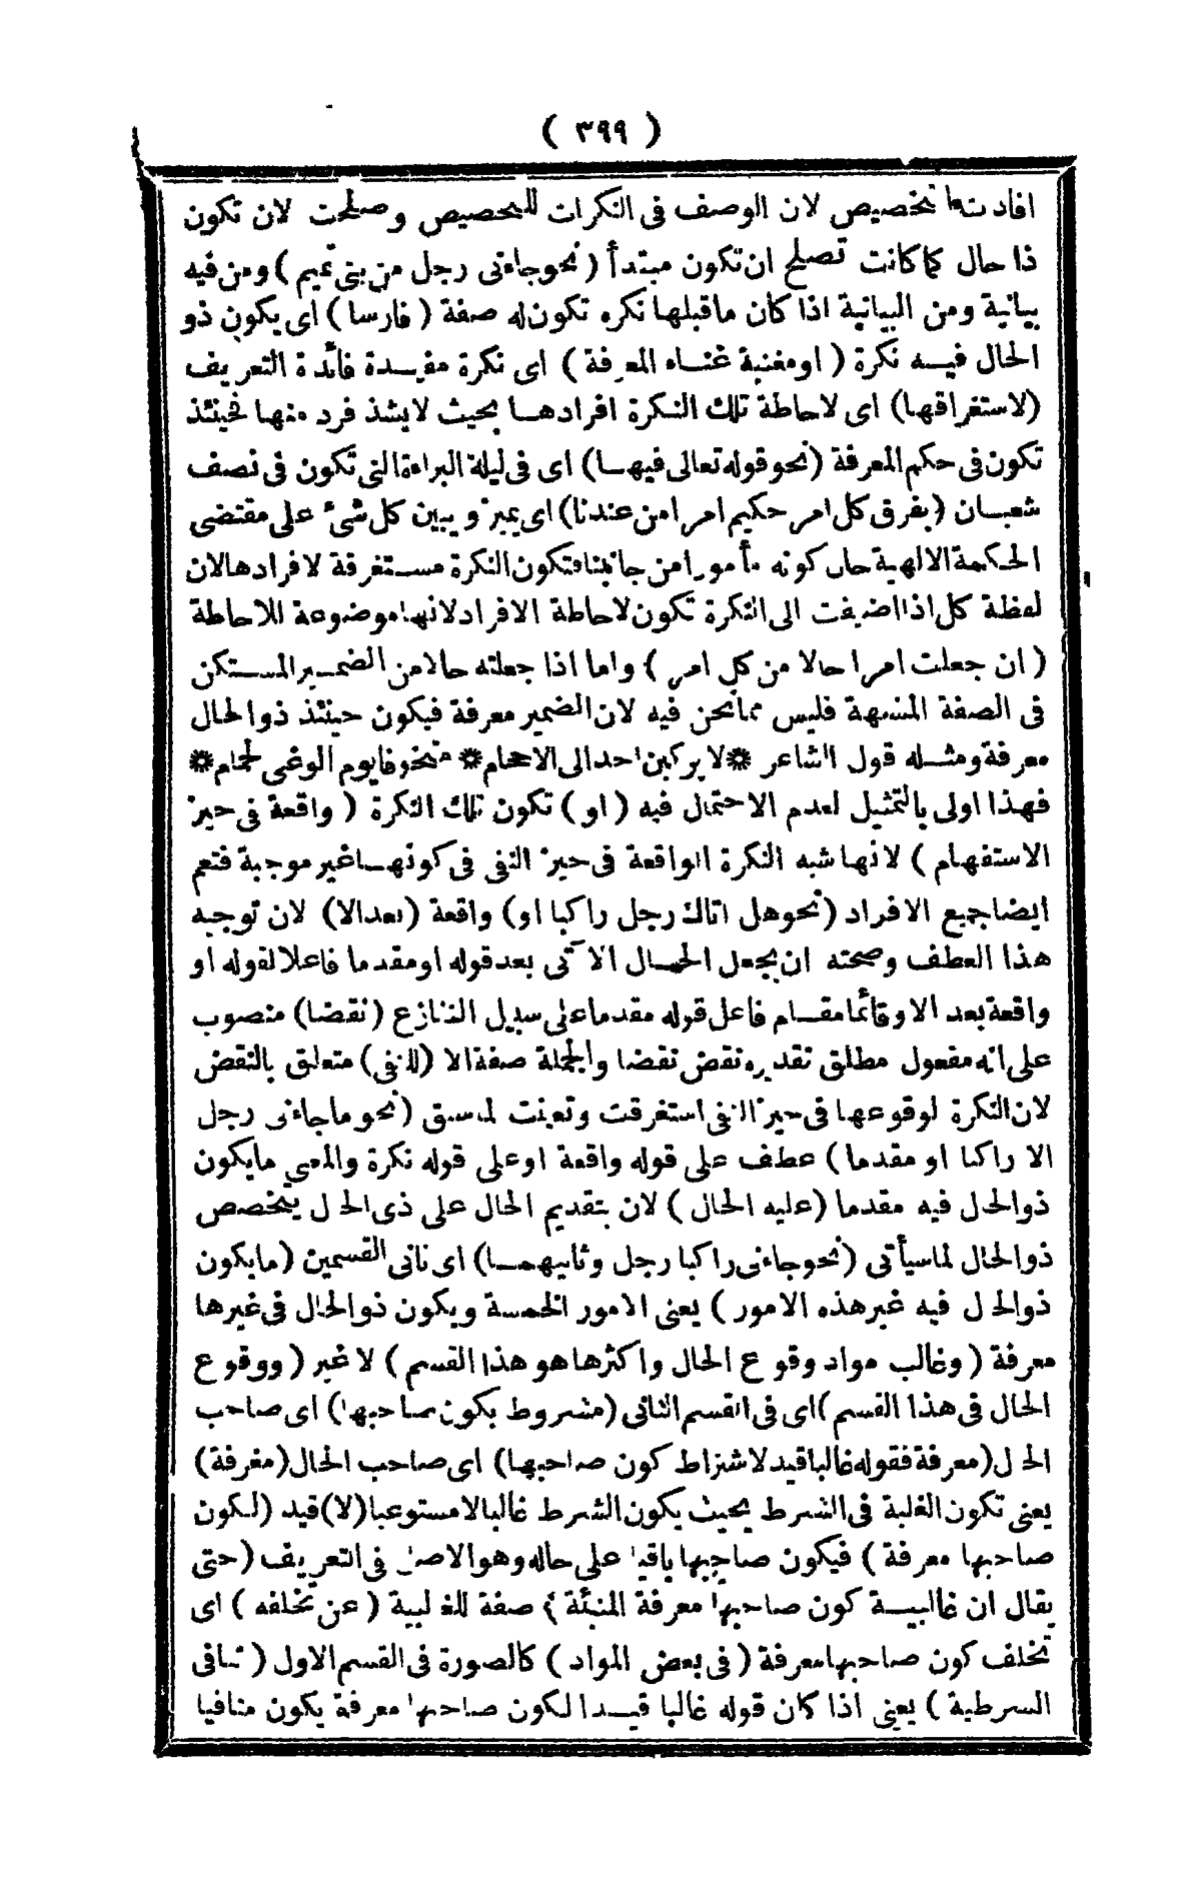 ( ٣٩٩ )
افادتها تخصيص لان الوصف فى النكرات للتخصيص وصلحت لان تكون
ذا حال كما كانت تصلح ان تكون مبتدأ ( نحو جاءنى رجل من بنى تميم ) ومن فيه
بيانية ومن البيانية اذا كان ماقبلها نكره تكون له صفة ( فارسا ) اى يكون ذو
الحال فيه نكرة ( او مغنية غناء المعرفة ) اى نكرة مفيدة فائدة التعريف
(لاستغراقها) اى لاحاطة تلك النكرة افرادها بحيث لايشذ فرد منها فحينئذ
تكون فى حكم المعرفة (نحو قوله تعالى فيها) اى فى ليلة البراءة التى تكون فى نصف
شعبان (يفرق كل امر حكيم امرا من عندنا) اى يميز ويبين كل شئ على مقتضى
الحكمة الالهية حال كونه مأمورا من جانبنا فتكون النكرة مستغرقة لافرادها لان
لفظة كل اذا اضيفت الى النكرة تكون لاحاطة الافراد لانها موضوعة للاحاطة
( ان جعلت امرا حالا من كل امر ) واما اذا جعلته حالا من الضمير المستكن
فى الصفة المشبهة فليس مما نحن فيه لان الضمير معرفة فيكون حينئذ ذو الحال
معرفة ومثله قول الشاعر * لا يركبن احد الى الاحجام * متخوفا يوم الوغى لحمام *
فهذا اولى بالتمثيل لعدم الاحتمال فيه ( او ) تكون تلك النكرة ( واقعة فى حيز
الاستفهام ) لانها شبه النكرة الواقعة فى حيز النفى فى كونها غير موجبة فتعم
ايضا جميع الافراد (نحو هل اتاك رجل راكبا او) واقعة (بعد الا) لان توجيه
هذا العطف وصحته ان يجعل الحال الآتى بعد قوله او مقدما فاعلا لقوله او
واقعة بعد الا وقائما مقام فاعل قوله مقدما على سبيل التنازع (نقضا) منصوب
على انه مفعول مطلق تقديره نقض نقضا والجملة صفة الا (للنفى) متعلق بالنقض
لان النكرة لوقوعها فى حيز النفى استغرقت وتعينت لما سبق (نحو ما جاءنى رجل
الا راكبا او مقدما ) عطف على قوله واقعة او على قوله نكرة والمعنى مايكون
ذو الحال فيه مقدما (عليه الحال ) لان بتقديم الحال على ذى الحال يتخصص
ذو الحال لما سيأتى (نحو جاءنى راكبا رجل وثانيهما) اى ثانى القسمين (مايكون
ذو الحال فيه غير هذه الامور ) يعنى الامور الخمسة ويكون ذو الحال فى غيرها
معرفة ( وغالب مواد وقوع الحال واكثرها هو هذا القسم ) لا غير ( ووقوع
الحال فى هذا القسم )اى فى القسم الثانى (مشروط بكون صاحبها) اى صاحب
الحال(معرفة فقوله غالبا قيد لاشتراط كون صاحبها) اى صاحب الحال(معرفة)
يعنى تكون الغلبة فى الشرط بحيث يكون الشرط غالبا لامستوعبا (لا) قيد (لكون
صاحبها معرفة ) فيكون صاحبها باقيا على حاله وهو الاصل فى التعريف (حتى
يقال ان غالبية كون صاحبها معرفة المنبئة ) صفة للغالبية ( عن تخلفه ) اى
تخلف كون صاحبها معرفة ( فى بعض المواد ) كالصورة فى القسم الاول ( تنافى
الشرطية ) يعنى اذا كان قوله غالبا قيدا لكون صاحبها معرفة يكون منافيا